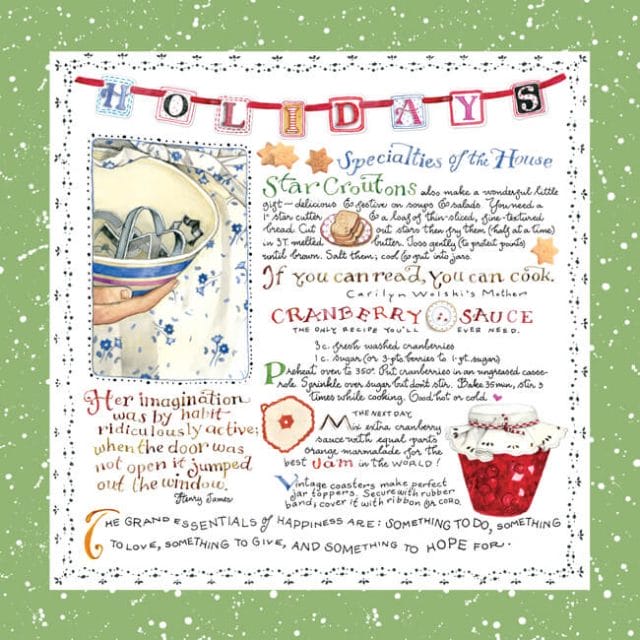 HOLIDAYS
Specialties of the House
Star Croutons also make a wonderful little
gift — delicious & festive on soups & salads. You need a
1" star cutter & a loaf of thin-sliced, fine-textured
bread. Cut out stars then fry them (half at a time)
in 3T. melted butter. Toss gently (to protect points)
until brown. Salt them; cool & put into jars.
If you can read, you can cook.
Carilyn Wolski's Mother
CRANBERRY SAUCE
THE ONLY RECIPE YOU'LL EVER NEED.
3 c. fresh washed cranberries
1 c. sugar (or 3 pts. berries to 1 pt. sugar)
Preheat oven to 350°. Put cranberries in an ungreased casse-
role. Sprinkle over sugar but don't stir. Bake 35 min., stir 3
times while cooking. Good hot or cold
Her imagination
was by habit
ridiculously active;
when the door was
not open it jumped
out the window.
Henry James
THE NEXT DAY,
Mix extra cranberry
sauce with equal parts
orange marmalade for the
best Jam in the WORLD!
Vintage coasters make perfect
jar toppers. Secure with rubber
band; cover it with ribbon or cord.
THE GRAND ESSENTIALS of HAPPINESS ARE: SOMETHING TO DO, SOMETHING
TO LOVE, SOMETHING TO GIVE, AND SOMETHING TO HOPE FOR.